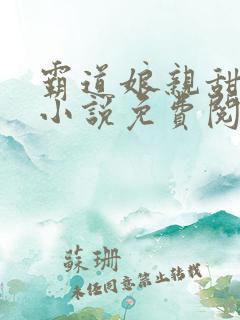 霸道娘親甜
小說免費閱
蘇珊
未經同意禁止轉載